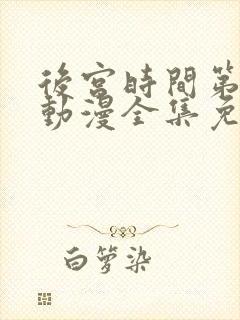 後宮時間第
動漫全集免
白箩染